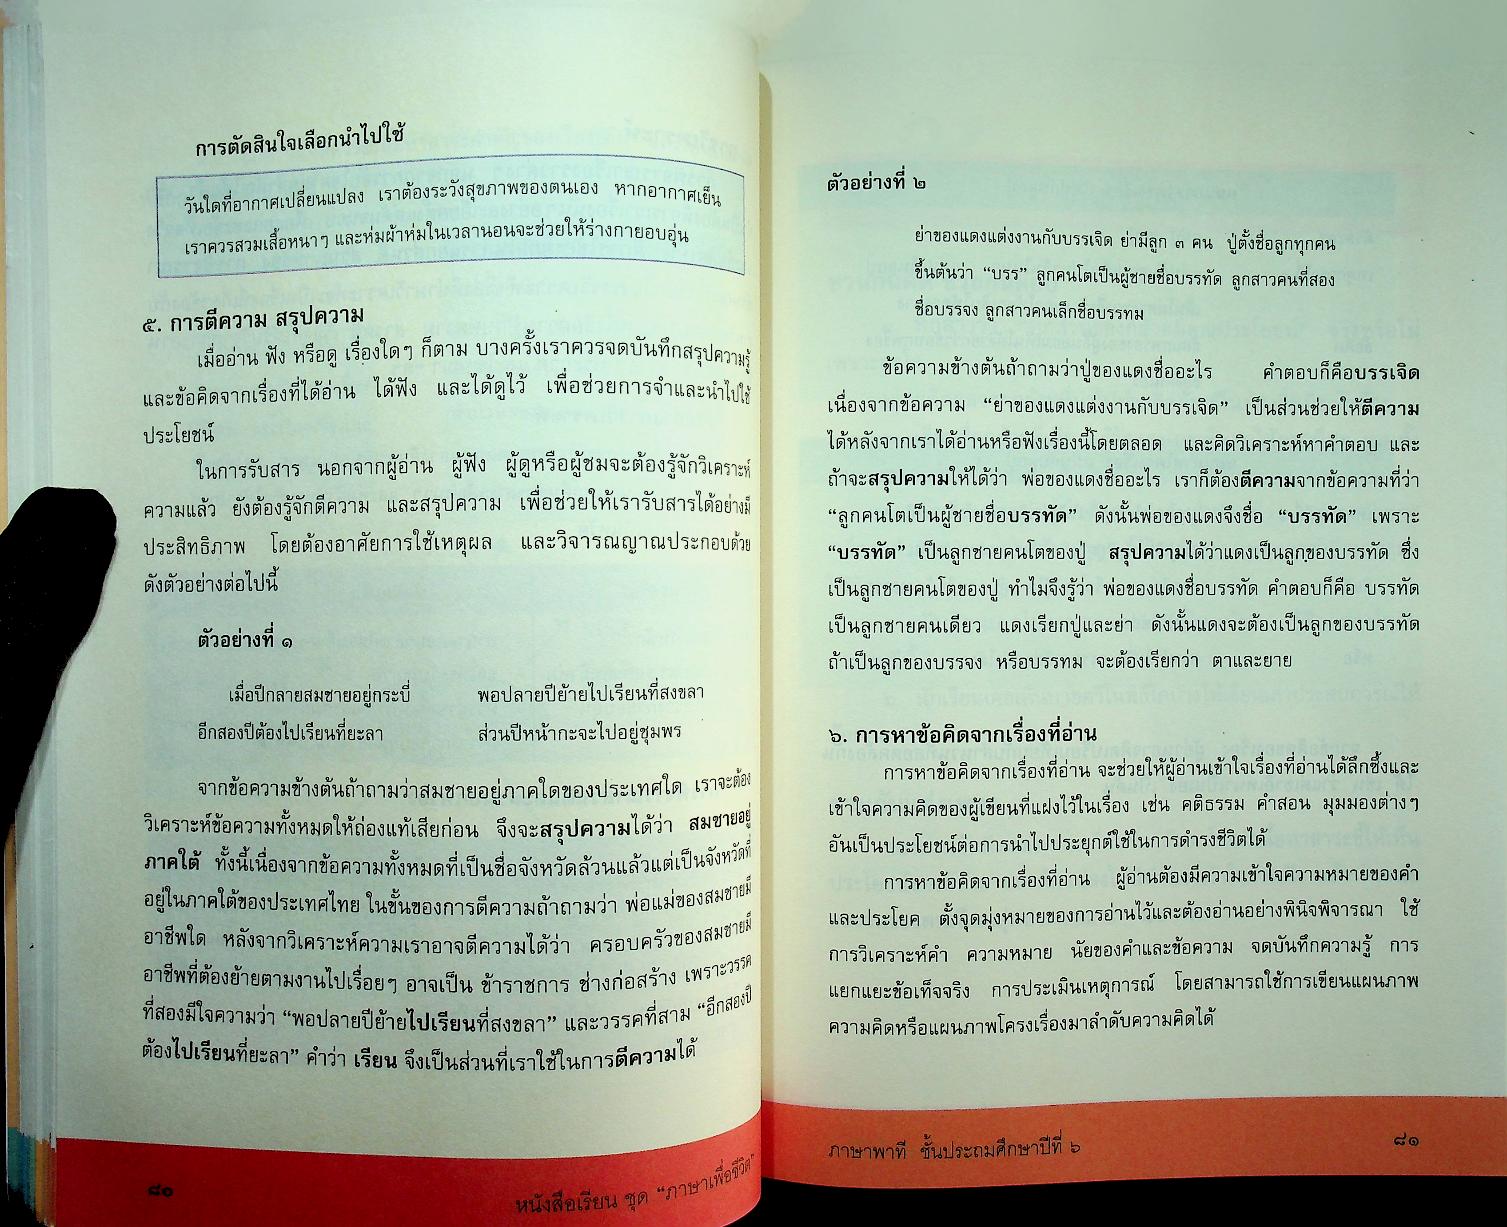 การตัดสินใจเลือกนำไปใช้
วันใดที่อากาศเปลี่ยนแปลง เราต้องระวังสุขภาพของตนเอง หากอากาศเย็น
เราควรสวมเสื้อหนาๆ และห่มผ้าห่มในเวลานอนจะช่วยให้ร่างกายอบอุ่น
๕. การตีความ สรุปความ
เมื่ออ่าน ฟัง หรือดู เรื่องใดๆ ก็ตาม บางครั้งเราควรจดบันทึกสรุปความรู้
และข้อคิดจากเรื่องที่ได้อ่าน ได้ฟัง และได้ดูไว้ เพื่อช่วยการจำและนำไปใช้
ประโยชน์
ในการรับสาร นอกจากผู้อ่าน ผู้ฟัง ผู้ดูหรือผู้ชมจะต้องรู้จักวิเคราะห์
ความแล้ว ยังต้องรู้จักตีความ และสรุปความ เพื่อช่วยให้เรารับสารได้อย่างมี
ประสิทธิภาพ โดยต้องอาศัยการใช้เหตุผล และวิจารณญาณประกอบด้วย
ดังตัวอย่างต่อไปนี้
ตัวอย่างที่ ๑
เมื่อปีกลายสมชายอยู่กระบี่ พอปลายปีย้ายไปเรียนที่สงขลา
อีกสองปีต้องไปเรียนที่ยะลา ส่วนปีหน้ากะจะไปอยู่ชุมพร
จากข้อความข้างต้นถ้าถามว่าสมชายอยู่ภาคใดของประเทศใด เราจะต้อง
วิเคราะห์ข้อความทั้งหมดให้ถ่องแท้เสียก่อน จึงจะสรุปความได้ว่า สมชายอยู่
ภาคใต้ ทั้งนี้เนื่องจากข้อความทั้งหมดที่เป็นชื่อจังหวัดล้วนแล้วแต่เป็นจังหวัดที่
อยู่ในภาคใต้ของประเทศไทย ในขั้นของการตีความถ้าถามว่า พ่อแม่ของสมชายมี
อาชีพใด หลังจากวิเคราะห์ความเราอาจตีความได้ว่า ครอบครัวของสมชายมี
อาชีพที่ต้องย้ายตามงานไปเรื่อยๆ อาจเป็น ข้าราชการ ช่างก่อสร้าง เพราะวรรค
ที่สองมีใจความว่า “พอปลายปีย้ายไปเรียนที่สงขลา” และวรรคที่สาม “อีกสองปี
ต้องไปเรียนที่ยะลา” คำว่า เรียน จึงเป็นส่วนที่เราใช้ในการตีความได้
๘๐
หนังสือเรียน ชุด “ภาษาเพื่อชีวิต”
ตัวอย่างที่ ๒
ย่าของแดงแต่งงานกับบรรเจิด ย่ามีลูก ๓ คน ปู่ตั้งชื่อลูกทุกคน
ขึ้นต้นว่า “บรร” ลูกคนโตเป็นผู้ชายชื่อบรรทัด ลูกสาวคนที่สอง
ชื่อบรรจง ลูกสาวคนเล็กชื่อบรรทม
ข้อความข้างต้นถ้าถามว่าปู่ของแดงชื่ออะไร คำตอบก็คือบรรเจิด
เนื่องจากข้อความ “ย่าของแดงแต่งงานกับบรรเจิด” เป็นส่วนช่วยให้ตีความ
ได้หลังจากเราได้อ่านหรือฟังเรื่องนี้โดยตลอด และคิดวิเคราะห์หาคำตอบ และ
ถ้าจะสรุปความให้ได้ว่า พ่อของแดงชื่ออะไร เราก็ต้องตีความจากข้อความที่ว่า
“ลูกคนโตเป็นผู้ชายชื่อบรรทัด” ดังนั้นพ่อของแดงจึงชื่อ “บรรทัด” เพราะ
“บรรทัด” เป็นลูกชายคนโตของปู่ สรุปความได้ว่าแดงเป็นลูกของบรรทัด ซึ่ง
เป็นลูกชายคนโตของปู่ ทำไมจึงรู้ว่า พ่อของแดงชื่อบรรทัด คำตอบก็คือ บรรทัด
เป็นลูกชายคนเดียว แดงเรียกปู่และย่า ดังนั้นแดงจะต้องเป็นลูกของบรรทัด
ถ้าเป็นลูกของบรรจง หรือบรรทม จะต้องเรียกว่า ตาและยาย
๖. การหาข้อคิดจากเรื่องที่อ่าน
การหาข้อคิดจากเรื่องที่อ่าน จะช่วยให้ผู้อ่านเข้าใจเรื่องที่อ่านได้ลึกซึ้งและ
เข้าใจความคิดของผู้เขียนที่แฝงไว้ในเรื่อง เช่น คติธรรม คำสอน มุมมองต่างๆ
อันเป็นประโยชน์ต่อการนำไปประยุกต์ใช้ในการดำรงชีวิตได้
การหาข้อคิดจากเรื่องที่อ่าน ผู้อ่านต้องมีความเข้าใจความหมายของคำ
และประโยค ตั้งจุดมุ่งหมายของการอ่านไว้และต้องอ่านอย่างพินิจพิจารณา ใช้
การวิเคราะห์คำ ความหมาย นัยของคำและข้อความ จดบันทึกความรู้ การ
แยกแยะข้อเท็จจริง การประเมินเหตุการณ์ โดยสามารถใช้การเขียนแผนภาพ
ความคิดหรือแผนภาพโครงเรื่องมาลำดับความคิดได้
ภาษาพาที ชั้นประถมศึกษาปีที่ ๖
๘๑